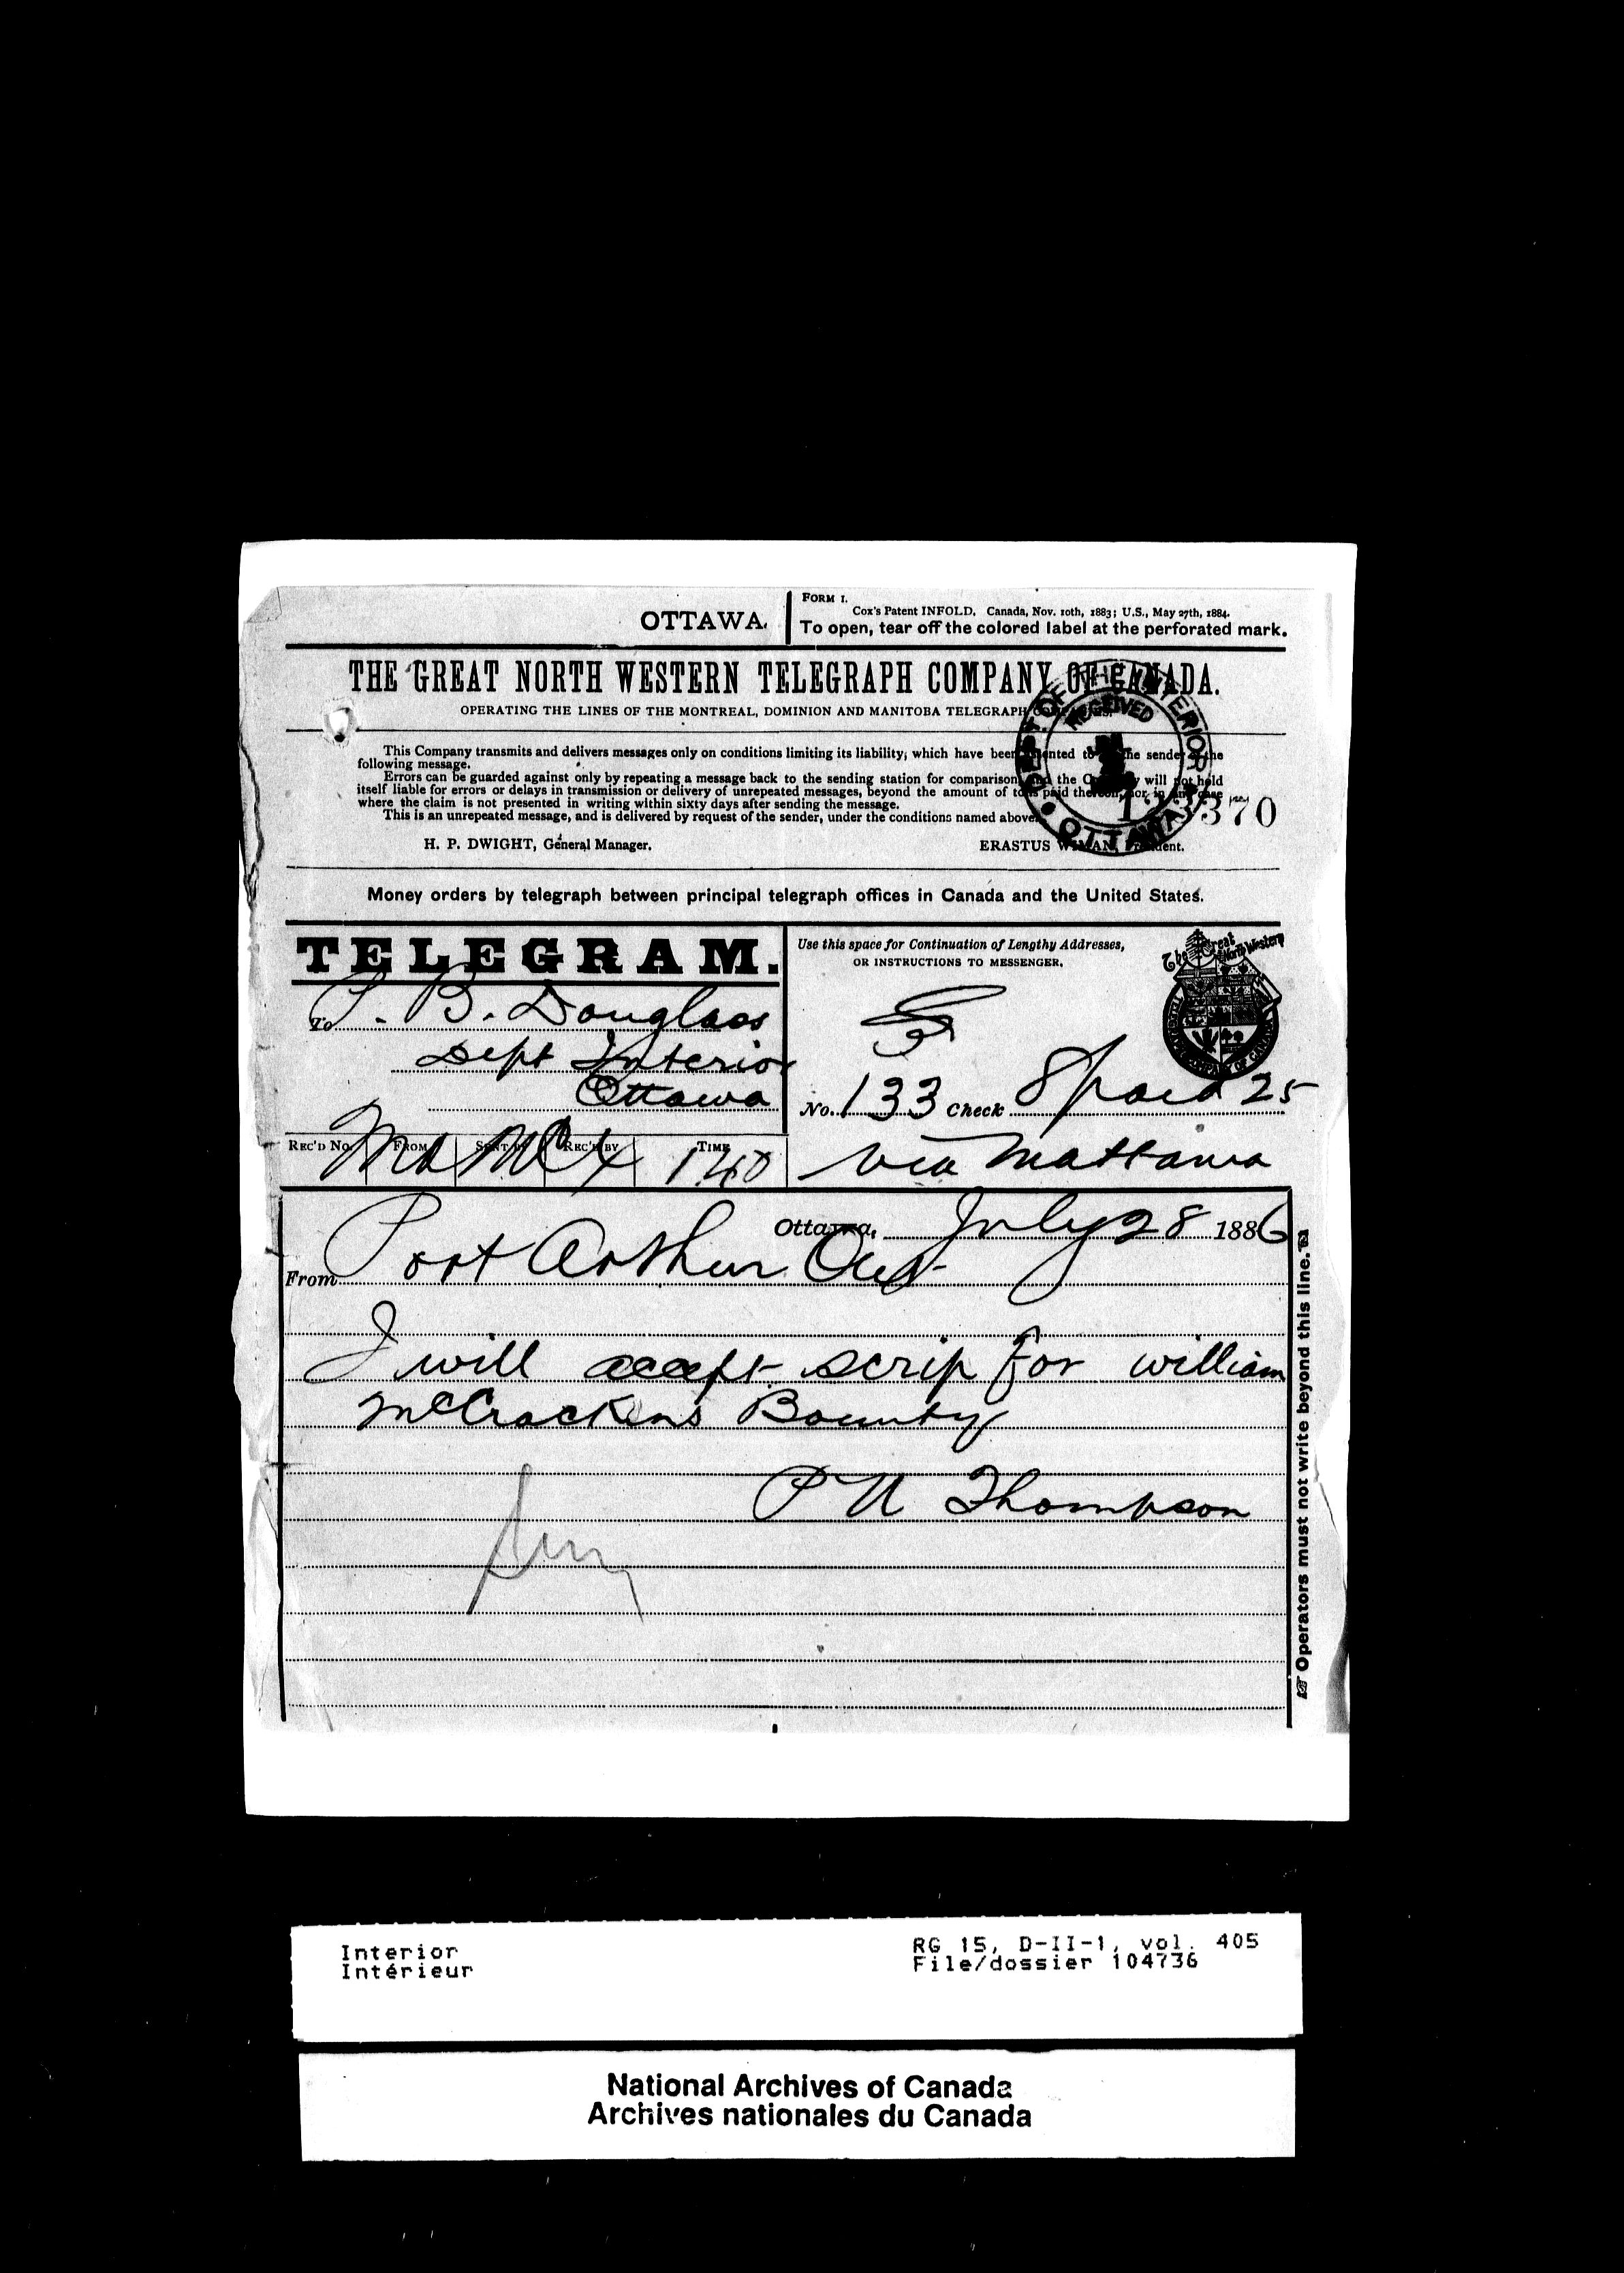 OTTAWA.
FORM 1.
Cox's Patent INFOLD. Canada, Nov. 10th, 1883; U.S., May 27th, 1884.
To open, tear off the colored label at the perforated mark.
THE GREAT NORTH WESTERN TELEGRAPH COMPANY OF CANADA.
OPERATING THE LINES OF THE MONTREAL, DOMINION AND MANITOBA TELEGRAPH COMPANIES.
DEPT OF THE INTERIOR
RECEIVED
OTTAWA
This Company transmits and delivers messages only on conditions limiting its liability, which have been assented to by the sender of the
following message.
Errors can be guarded against only by repeating a message back to the sending station for comparison, and the Company will not hold
itself liable for errors or delays in transmission or delivery of unrepeated messages, beyond the amount of tolls paid thereon, nor in any case
where the claim is not presented in writing within sixty days after sending the message.
This is an unrepeated message, and is delivered by request of the sender, under the conditions named above.
123370
H. P. DWIGHT, General Manager.
ERASTUS WIMAN, President.
Money orders by telegraph between principal telegraph offices in Canada and the United States.
TELEGRAM.
Use this space for Continuation of Lengthy Addresses,
OR INSTRUCTIONS TO MESSENGER.
The Great North Western
To P. B. Douglass
Dept Interior
Ottawa
No. 133 Check 8 paid 25
REC'D NO. FROM SENT BY REC'D BY TIME
140
via Mattawa
Ottawa, July 28 1886
From Port Arthur Ont
I will accept scrip for william
McCrackens Bounty
P N Thompson
Operators must not write beyond this line.
Interior
Intérieur
RG 15, D-II-1, vol. 405
File/dossier 104736
National Archives of Canada
Archives nationales du Canada